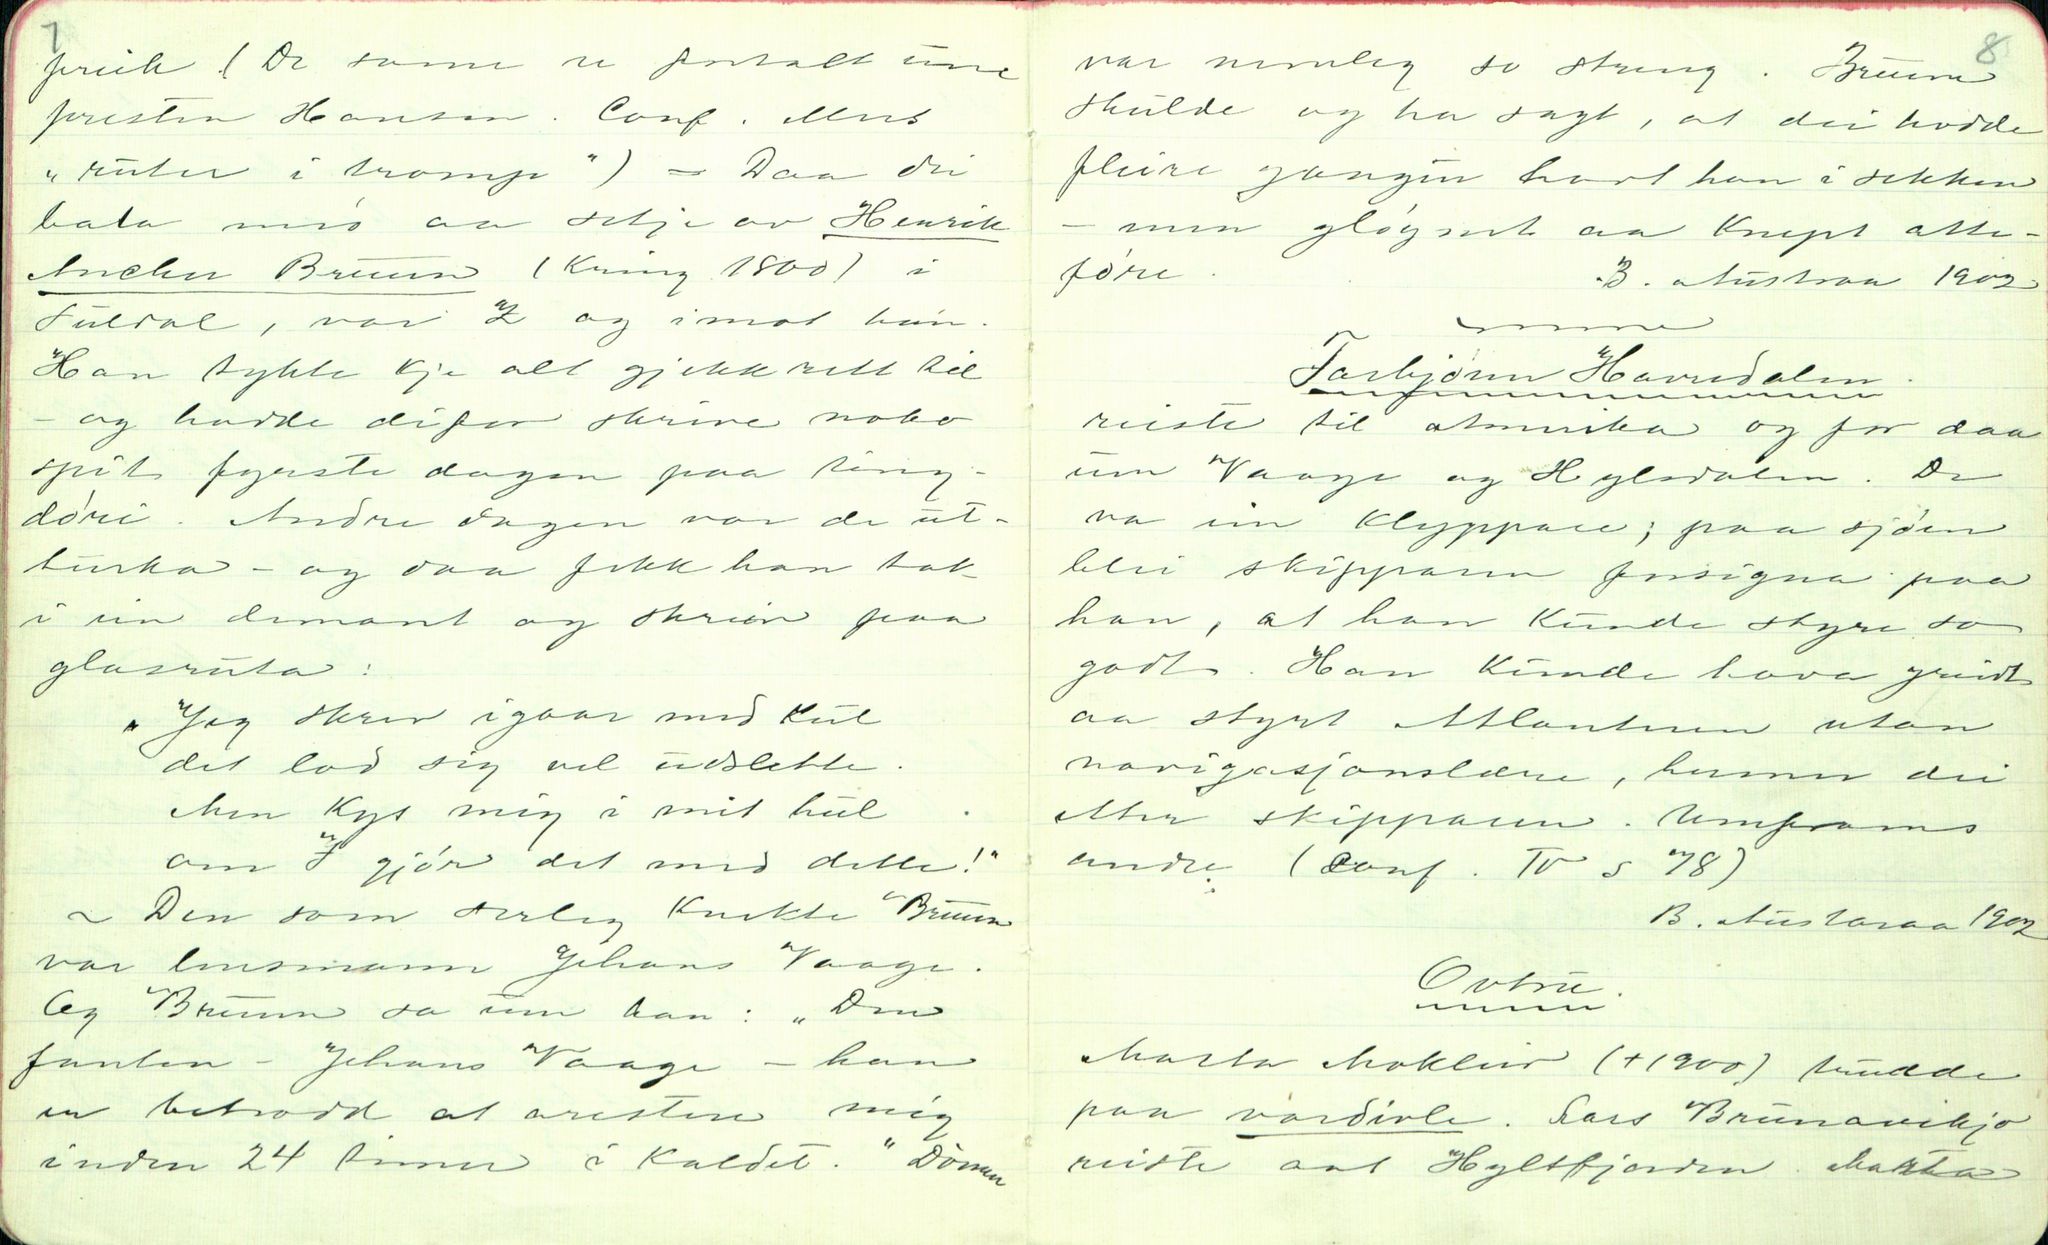 7
preik (De same er fortalt um
presten Hansen. Conf. Mns
„ruter i tromp") — Daa dei
bala med aa setje av Henrik
Ancher Bruun (kring 1800) i
Suldal, var Z og imot han.
Han tykte kje alt gjekk rett til
- og hadde difor skrive noko
spit fyrste dagen paa ting-
döri. Andre dagen var de ut-
turka - og daa fekk han tak
i ein demant og skreiv paa
glasruta:
„Jeg skrev igaar med kul
det lod sig vel udslette.
Men kys mig i mit hul
om I gjör det med dette!"
~ Den som serleg knekte Bruun
var lensmann Jehans Vaage.
Og Bruun sa um han: „Den
fanten - Jehans Vaage - han
er betrodd at arestere mig
inden 24 timer i Kaldet." Dömen
8
var nemleg so streng. Bruun
skulde og ha sagt, at dei hadde
fleire gangen havt han i sekken
- men gløymt aa knept atte-
före.
B. Austraa 1902
Torbjörn Havredalen.
reiste til Amerika og for daa
um Vaage og Hylsdalen. De
va ein klyppare; paa sjöen
blei skipparen forsigna paa
han, at han kunde styre so
godt. Han kunde hava greidt
aa styrt Atlanteren utan
navigasjonslære, hermer dei
etter skipparen. Umframs
andre (Conf. IV s 78)
B. Austaraa 1902
Ovtru.
Marta Mokleiv (+1900) trudde
paa vardivle. Lars Brunavikjo
reiste aat Hylsfjorden. Marta